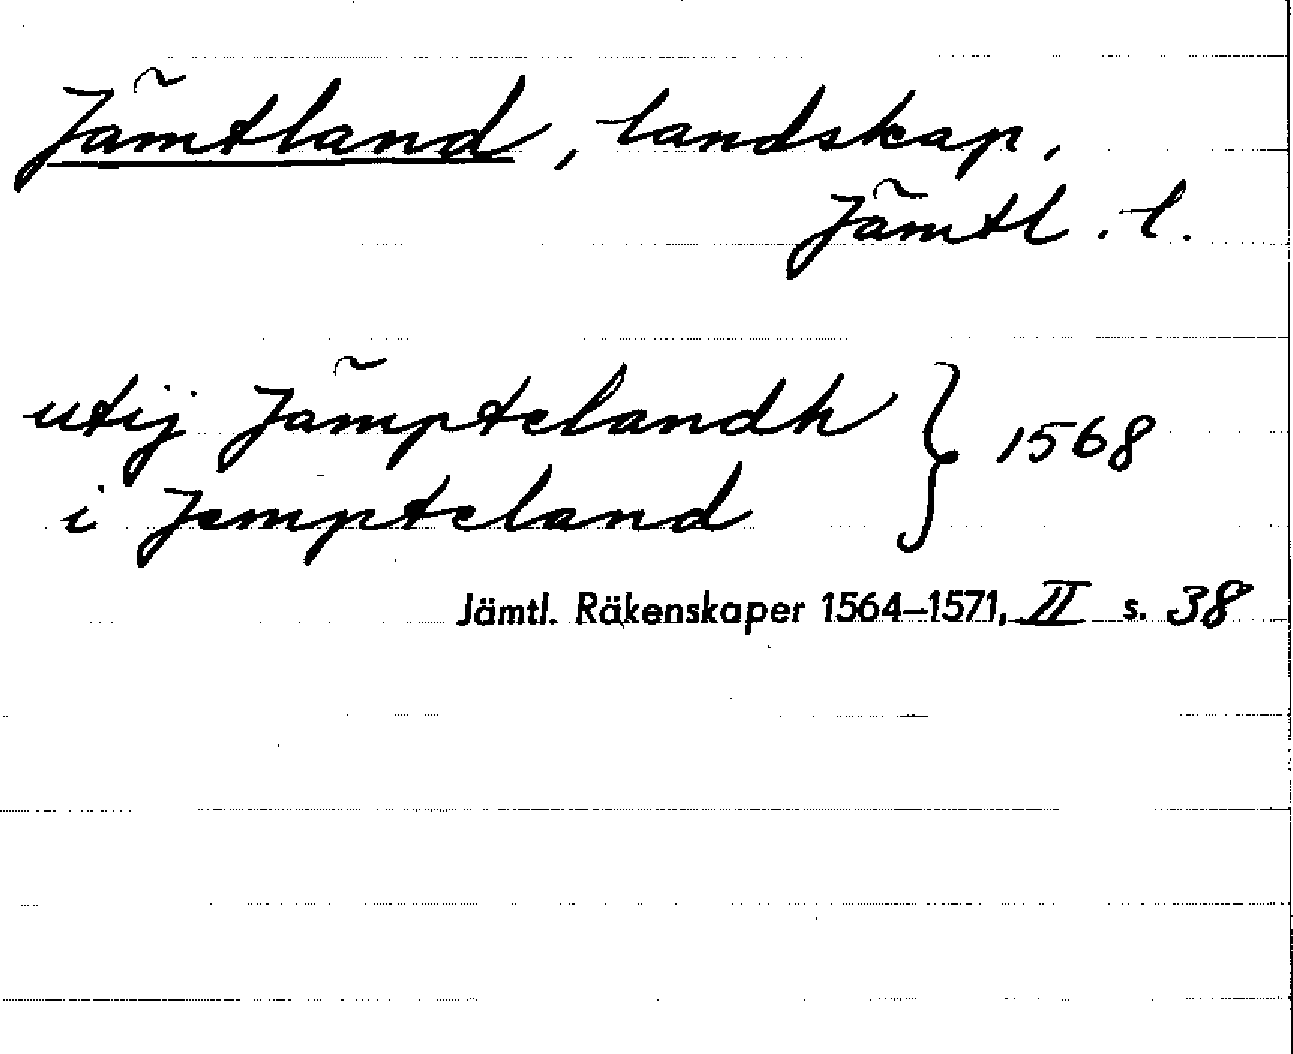 Jämtland, landskap,
Jämtl. l.
utij Jämptelandh } 1568
i Jempteland
Jämtl. Räkenskaper 1564–1571, II s. 38